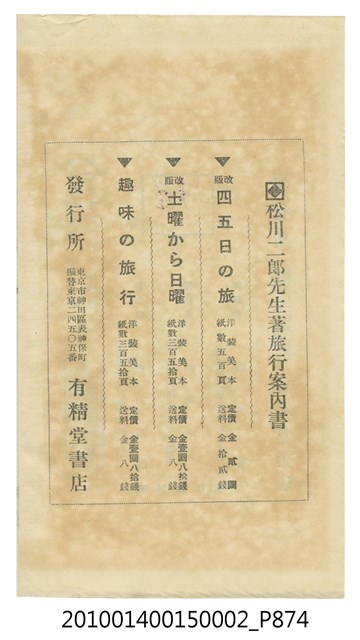 松川二郎先生著旅行案內書
改版 四五日の旅
洋裝美本
紙數五百頁
定價 金貳圓
送料 金拾貳錢
改版 土曜から日曜
洋裝美本
紙數三百五拾頁
定價 金壹圓八拾錢
送料 金八錢
趣味の旅行
洋裝美本
紙數三百五拾頁
定價 金壹圓八拾錢
送料 金八錢
發行所
東京市神田區表神保町
振替東京二四五〇五番
有精堂書店
201001400150002_P874